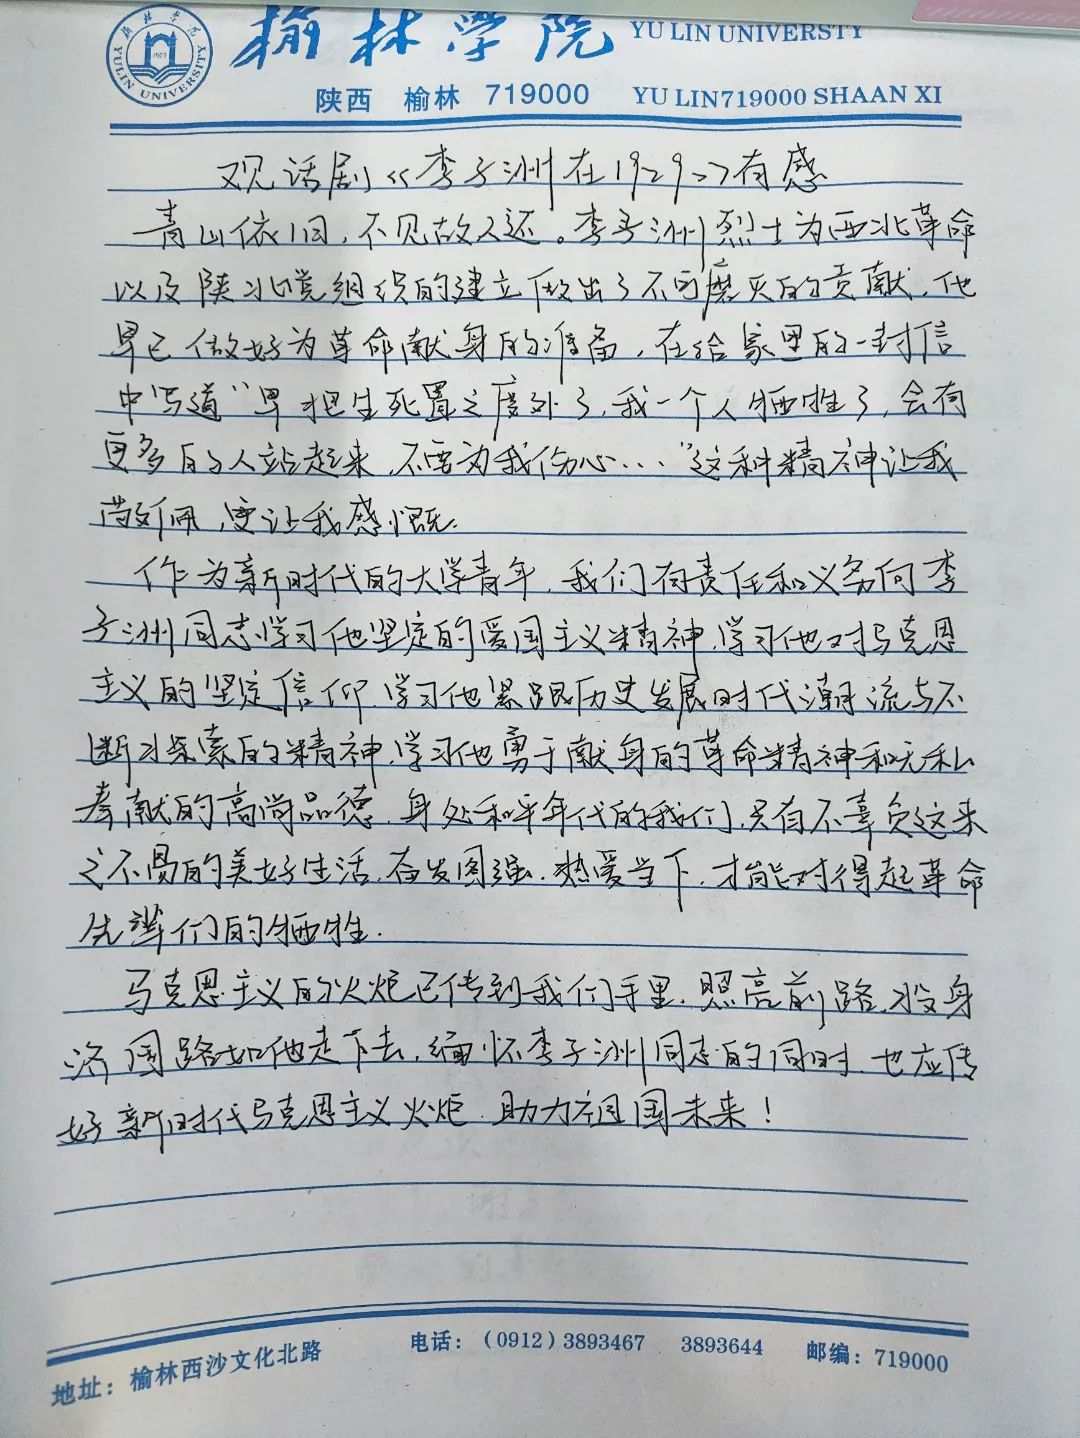 榆林学院 YU LIN UNIVERSTY
陕西 榆林 719000 YU LIN719000 SHAAN XI
YULIN UNIVERSITY
观话剧《李子洲在1929》有感
青山依旧,不见故人还。李子洲烈士为西北革命
以及陕北党组织的建立做出了不可磨灭的贡献,他
早已做好为革命献身的准备,在给家里的一封信
中写道"早把生死置之度外了,我一个人牺牲了,会有
更多的人站起来,不要为我伤心..."这种精神让我
敬佩,更让我感慨.
作为新时代的大学青年,我们有责任和义务向李
子洲同志学习他坚定的爱国主义精神,学习他对马克思
主义的坚定信仰,学习他紧跟历史发展时代潮流与不
断探索的精神,学习他勇于献身的革命精神和无私
奉献的高尚品德.身处和平年代的我们,只有不辜负这来
之不易的美好生活,奋发图强,热爱当下,才能对得起革命
先辈们的牺牲.
马克思主义的火炬已传到我们手里,照亮前路,投身
国路如他走下去,缅怀李子洲同志的同时,也应传
好新时代马克思主义火炬,助力祖国未来!
地址:榆林西沙文化北路 电话:(0912)3893467 3893644 邮编:719000